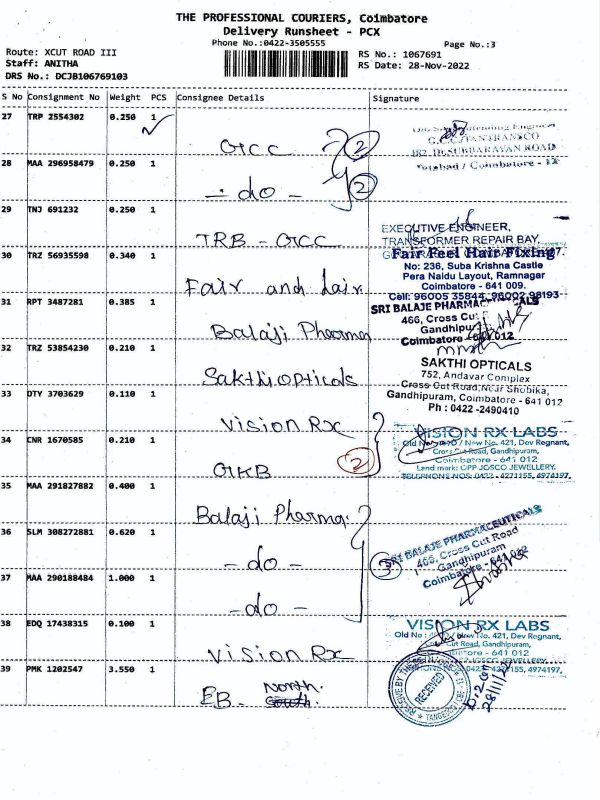 THE PROFESSIONAL COURIERS, Coimbatore
Delivery Runsheet - PCX
Phone No.:0422-3505555 Page No.:3
Route: XCUT ROAD III RS No.: 1067691
Staff: ANITHA RS Date: 28-Nov-2022
DRS No.: DCJB106769103
S No Consignment No Weight PCS Consignee Details Signature
27 TRP 2554302 0.250 1
GCC 2
G.C.C/TANTRANSCO
182, Dr.SUBBARAYAN ROAD
Tatabad / Coimbatore - 12
28 MAA 296958479 0.250 1
- do - 2
29 TNJ 691232 0.250 1
TRB - GCC
EXECUTIVE ENGINEER,
TRANSFORMER REPAIR BAY,
30 TRZ 56935598 0.340 1
Fair and hair
Fair Feel Hair Fixing
No: 236, Suba Krishna Castle
Pera Naidu Layout, Ramnagar
Coimbatore - 641 009.
Cell: 96005 35844, 96002 98193
31 RPT 3487281 0.385 1
Balaji Pharmacy
SRI BALAJE PHARMACEUTICALS
466, Cross Cut
Gandhipur
Coimbatore 012
32 TRZ 53854230 0.210 1
Sakthi opticals
SAKTHI OPTICALS
752, Andavar Complex
Cross Cut Road, Near Shobika,
Gandhipuram, Coimbatore - 641 012
Ph : 0422 -2490410
33 DTY 3703629 0.110 1
Vision Rx
34 CNR 1670585 0.210 1
GKB 2
VISION RX LABS
Old No / New No. 421, Dev Regnant,
Cross Cut Road, Gandhipuram,
Coimbatore - 641 012
Land mark: OPP JOSCO JEWELLERY.
TELEPHONE NOS: 0422 - 4271155, 4974197,
35 MAA 291827882 0.400 1
Balaji Pharma.
36 SLM 308272881 0.620 1
- do - 3
SRI BALAJE PHARMACEUTICALS
466, Cross Cut Road
Gandhipuram
Coimbatore - 641 012
37 MAA 290188484 1.000 1
- do -
38 EDQ 17438315 0.100 1
Vision Rx
VISION RX LABS
Old No : New No. 421, Dev Regnant,
Cut Road, Gandhipuram,
641 012
JOSCO JEWELLERY
155, 4974197,
39 PMK 1202547 3.550 1
EB - North.
South.
RECEIVED